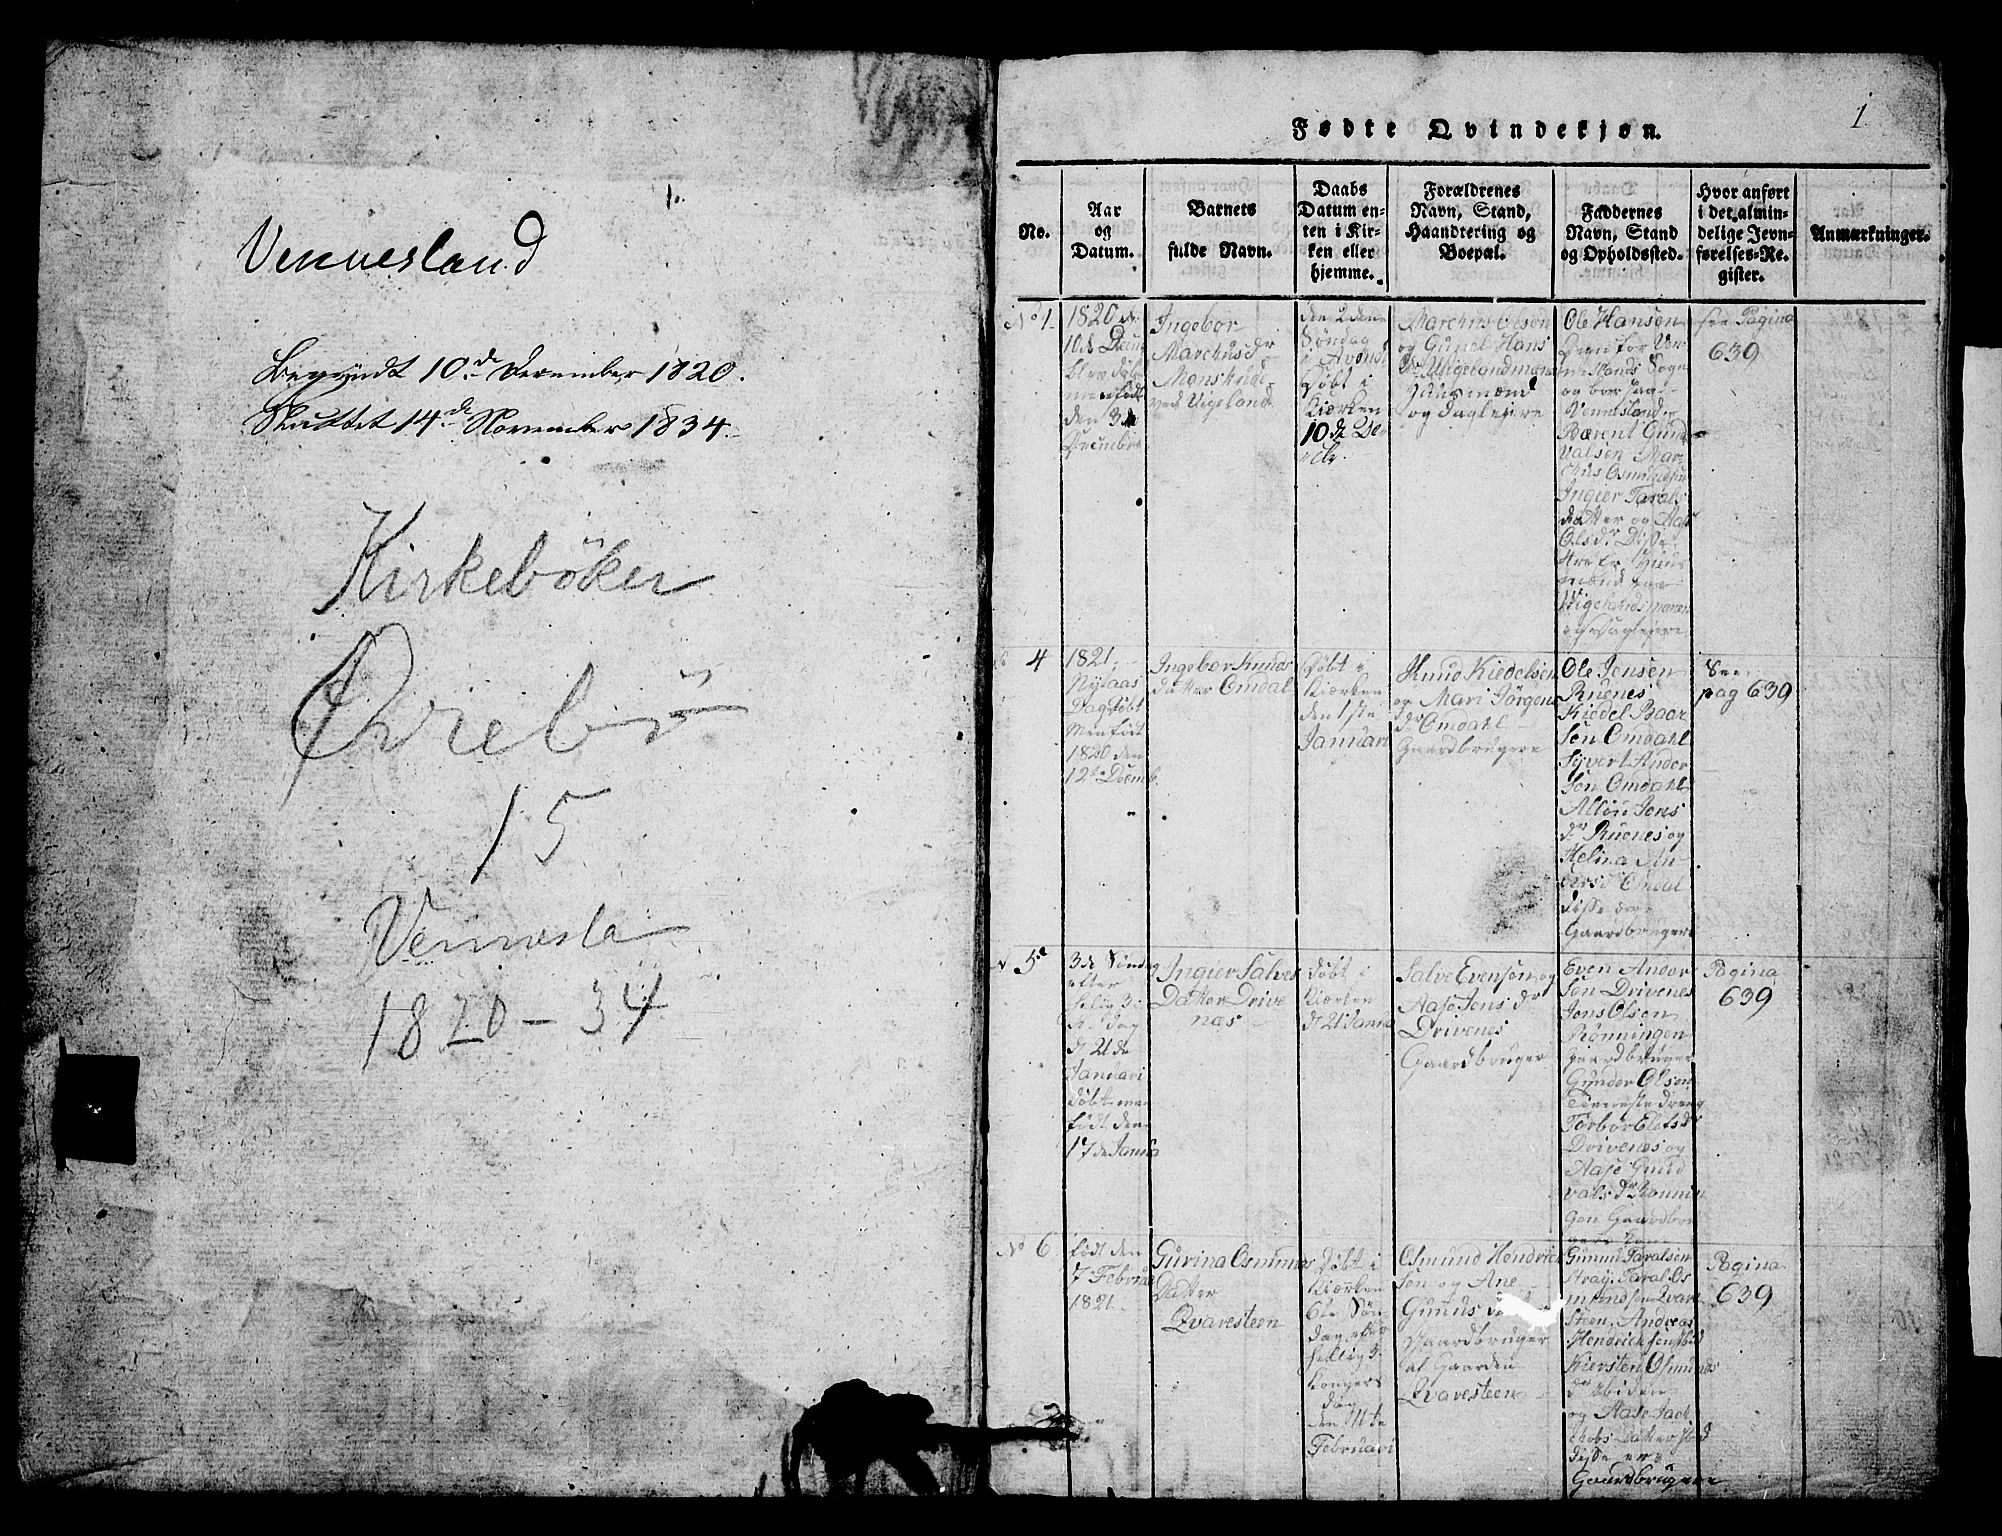 1.
Vennesland
Begyndt 10de December 1820.
Sluttet 14de November 1834.
Kirkebøker
Øvrebö
15
Vennesla
1820-34
1
Fødte Qvindekjøn.
No.
Aar
og
Datum.
Barnets
fulde Navn.
Daabs
Datum en-
ten i Kir-
ken eller
hjemme.
Forældrenes
Navn, Stand,
Haandtering og
Boepæl.
Faddernes
Navn, Stand
og Opholdssted.
Hvor anført
i det almin-
delige Jevn-
førelses-Re-
gister.
Anmærkninger.
No 1
1820 de
10de Decm
blev døb
men født
den 3de
Decembr
Ingebor
Marchusdr
ved Vigeland
den 2den
Søndag
i Advent
Døbt i
Kiærken
10de De
Marchus Olsen
og Gunel Hans
dr Vigelandmoen
Huusmænd
og dagleiere
Ole Hansen
Vennesland
Bærent Gund
valsen Mar
chus Osmundsen
Ingier Tarals
datter og Aase
Olsdr Disse
4re er Huus
mænd paa
Vigelandsmoen
og dagleiere
see Pagina
639
4
1821
Nytaars
Dag døbt
Men født
1820 den
12te Decemb.
Ingebor Knuds
datter Omdal
Døbt i
Kiærken
den 1ste
Januari
Knud Kiedelsen
og Mari Jørgens
dr Omdahl
Gaardbrugere
Ole Jensen
Ruenes
Kiedel Baar
Sen Omdahl
Syvert Ander
Sen Omdahl
Jens
dr Ruenes og
Helina An
dersd Omdal
disse ere
Gaardbrugere
See
pag 639
5
3de Søndag
efter
hellig 3
K. dag
d 21de
Januari
døbt men
født den
17de Janua
Ingier Salves
Datter Drive
nes
Døbt i
Kiærken
d 21 Janua
Salve Evensen og
Aase Jens dr
Drivenes
Gaardbruger
Even Ander
Sen Drivenes
Jens Olsen
Rønningen
gaardbruger
Gunder Olsen
Tieneste dreng
Torbor Elefsdr
Drivenes og
Aase Gund
valsdr Rønnin
gen Gaardbru
gere
Pagina
639
No 6
født den
7 Februar
1821
Gurina Osmunds
Datter
Qvarsteen
Døbt i
Kiærken
6te Søn
dag efter
hellig 3
Kongers
dag
den 11te
Februari
Osmund Hendrich
sen og Ane
Gunuds
Gaardbruger
af Gaarden
Qvarsteen
Gunud Taralsen
Straj, Taral Os
mundsen Qvar
Steen, Andreas
Hendrichsen
Kiersten Osmunds
dr
og Aase Jach
chobs Datter
disse ere
Gaardbrugere
Pagina
639